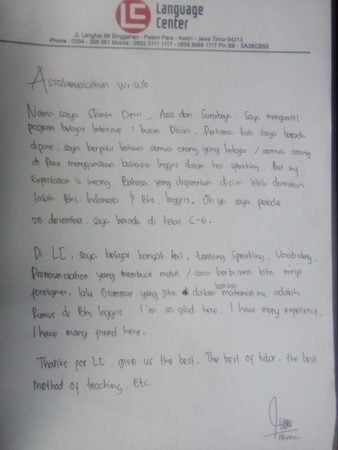 LC Language
Center
Jl. Langkat 88 Singgahan - Pelem Pare - Kediri - Jawa Timur 64213
Phone : 0354 - 396 561 Mobile : 0852 3111 1117 - 0856 5588 1117 Pin BB : 5A38CB55
Assalamualaikum Wr. Wb
Nama saya Dewi, Asal dari Surabaya. Saya mengambil
program belajar Intensive 1 bulan Disini. Pertama kali saya berada
dipare, saya berpikir bahwa semua orang yang belajar / semua orang
di Pare menggunakan bahasa Inggris dalam hal speaking. But my
Expectation is wrong. Bahasa yang digunakan disini lebih dominan
ialah Bhs. Indonesia & Bhs. Inggris. Oh ya saya periode
25 desember. saya berada di kelas C-6.
Di LC, saya belajar banyak hal, tentang Speaking, Vocabulary,
Pronounciation yang membuat kita / cara berbicara kita mirip
foreigner, lalu Grammar yang jika dalam bahasa matematika adalah
Rumus di Bhs Inggris. I'm so glad here. I have many experience,
I have many friend here.
Thanks for LC, give us the best. The best of tutor, the best
method of teaching, Etc.